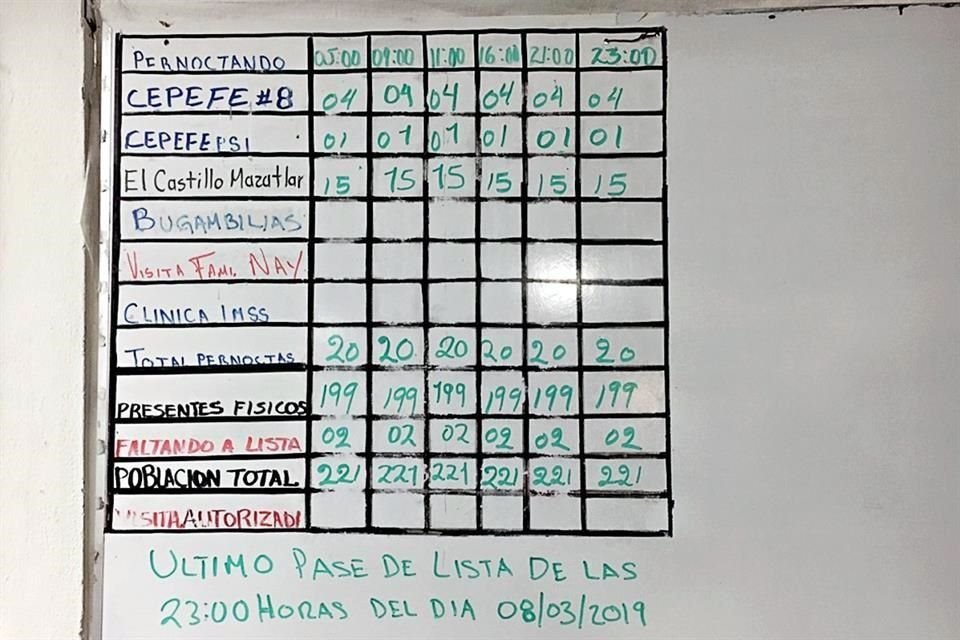 PERNOCTANDO 05:00 09:00 11:00 16:00 21:00 23:00
CEPEFE #8 04 04 04 04 04 04
CEPEFEPSI 01 01 01 01 01 01
El Castillo Mazatlar 15 15 15 15 15 15
BUGAMBILIAS
VISITA FAMI. NAY
CLINICA IMSS
TOTAL PERNOCTAS 20 20 20 20 20 20
PRESENTES FISICOS 199 199 199 199 199 199
FALTANDO A LISTA 02 02 02 02 02 02
POBLACION TOTAL 221 221 221 221 221 221
VISITA AUTORIZADA
ULTIMO PASE DE LISTA DE LAS
23:00 HORAS DEL DIA 08/03/2019